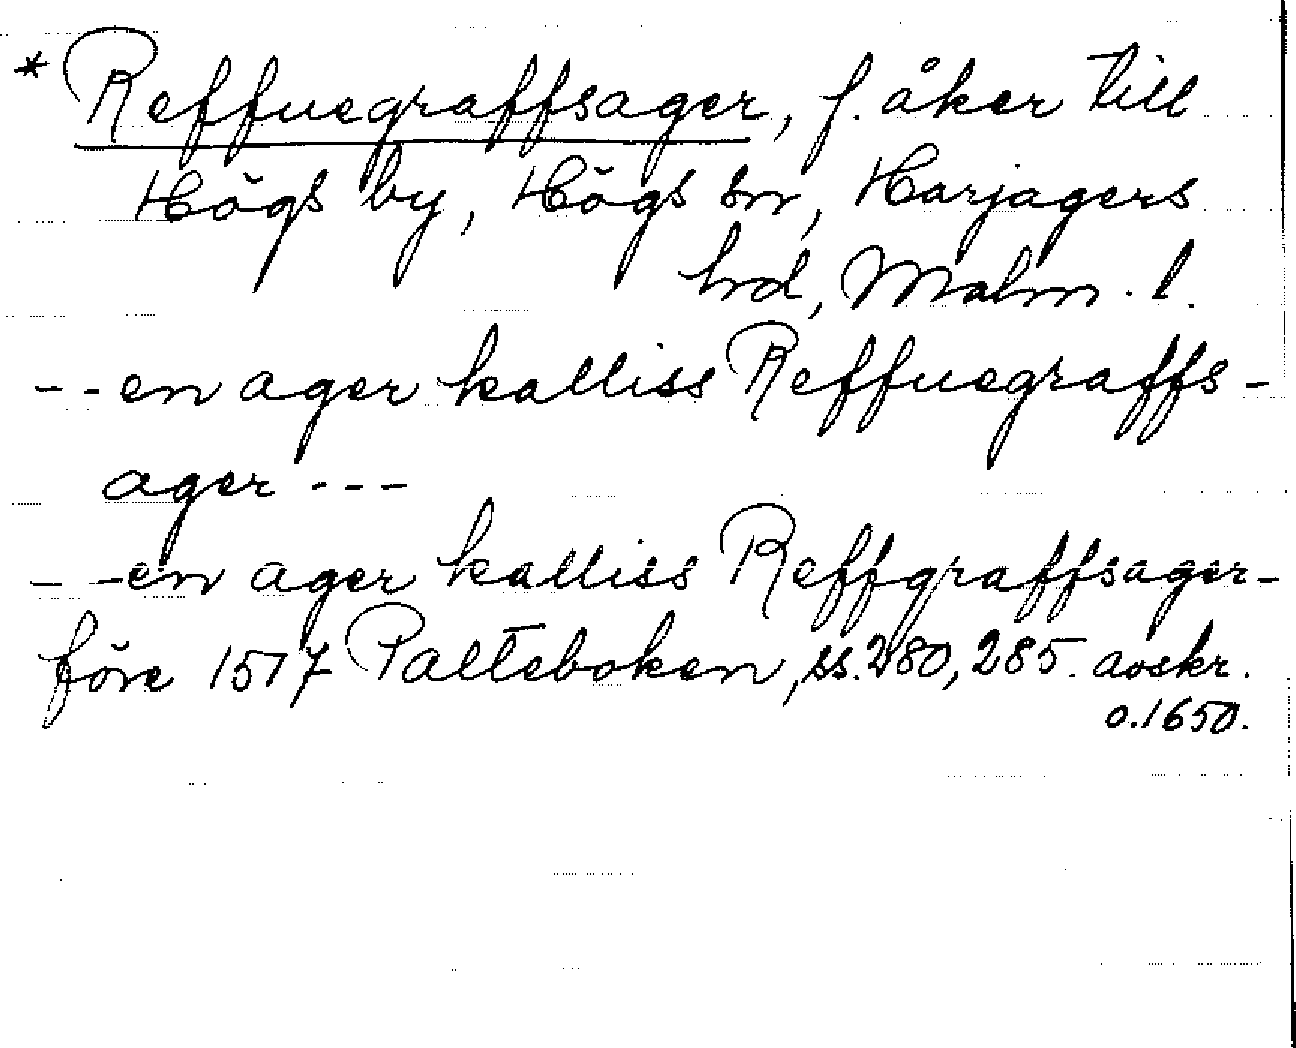 * Reffuegraffsager, f. åker till
Högs by, Högs sn, Harjagers
hrd, Malm. l.
- - en ager kalliss Reffuegraffs-
ager - - -
- - en ager kalliss Reffgraffsager-
före 1517 Palteboken, ss. 280, 285. avskr.
o. 1650.